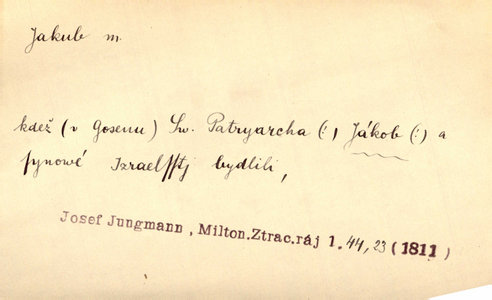 Jakub m.
kdež (v Gosenu) Sw. Patryarcha (:) Jákob (:) a
synowé Izraelsstj bydlili,
Josef Jungmann, Milton.Ztrac.ráj 1. 44, 23 (1811)